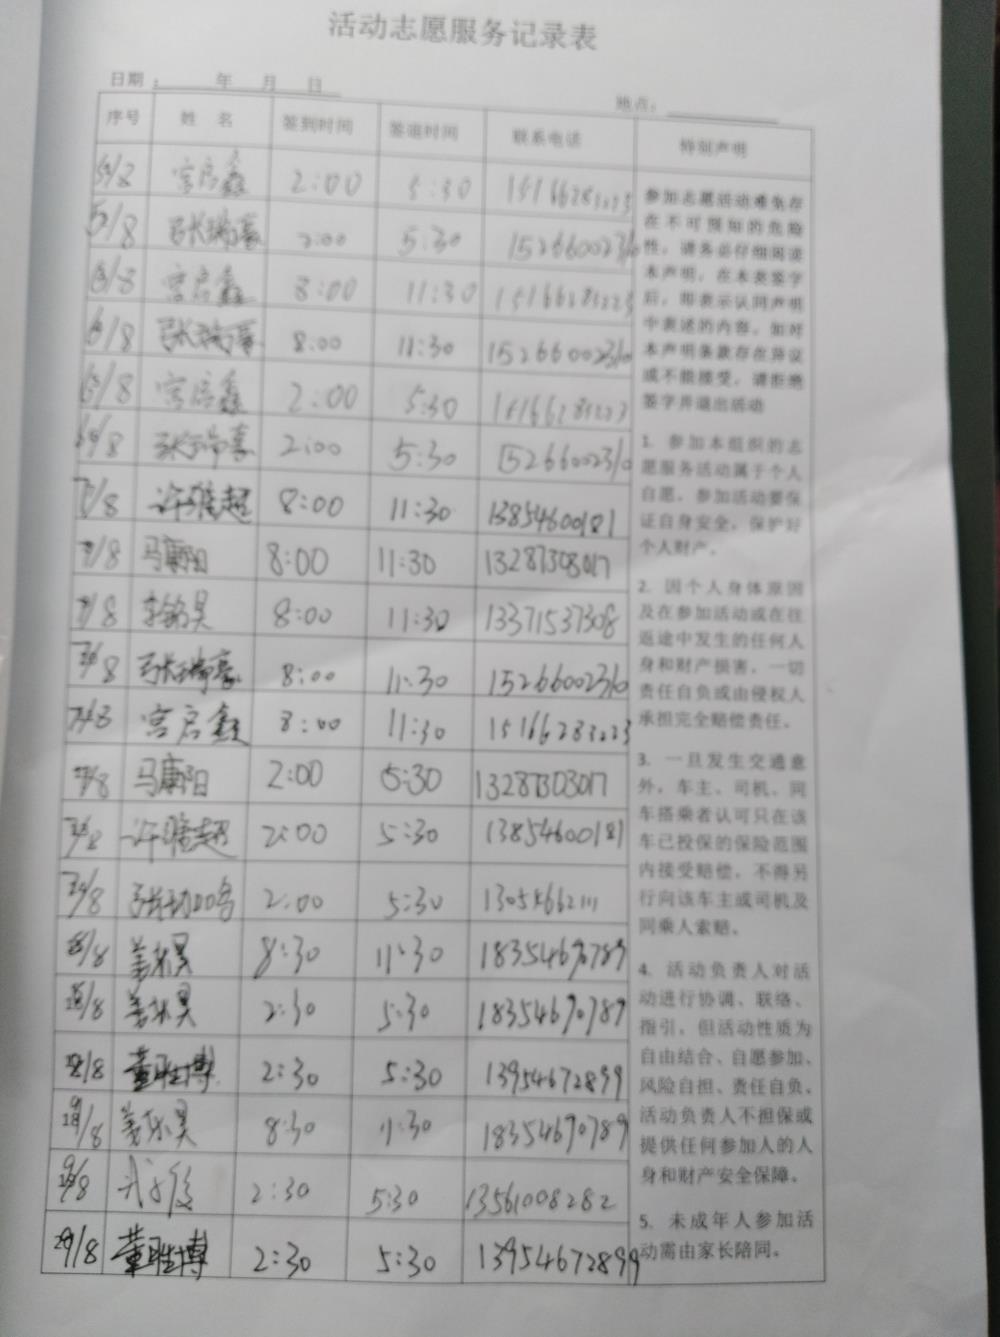 活动志愿服务记录表
日期： 年 月 日
地点：
序号 姓 名 签到时间 签退时间 联系电话 特别声明
宫启鑫 2:00 5:30
/8 张瑞豪 2:00 5:30 15266002310
/8 宫启鑫 8:00 11:30 15166283223
/8 张瑞豪 8:00 11:30 15266002310
/8 宫启鑫 2:00 5:30 15166283223
/8 张瑞豪 2:00 5:30 15266002310
/8 许雅超 8:00 11:30 13854600181
/8 马康阳 8:00 11:30 13287303017
/8 李铭昊 8:00 11:30 13371537308
/8 张瑞豪 8:00 11:30 15266002310
宫启鑫 8:00 11:30 15166283223
/8 马康阳 2:00 5:30 13287303017
/8 许雅超 2:00 5:30 13854600181
/8 2:00 5:30
/8 姜怀昊 8:30 11:30 18354690789
/8 姜怀昊 2:30 5:30 18354690789
/8 董胜博 2:30 5:30 13954672899
/8 姜怀昊 8:30 11:30 18354690789
/8 2:30 5:30 13561008282
/8 董胜博 2:30 5:30 13954672899
参加志愿活动难免存
在不可预知的危险
性，请务必仔细阅读
本声明，在本表签字
后，即表示认同声明
中表述的内容。如对
本声明条款存在异议
或不能接受，请拒绝
签字并退出活动
1. 参加本组织的志
愿服务活动属于个人
自愿。参加活动要保
证自身安全，保护好
个人财产。
2. 因个人身体原因
及在参加活动或在往
返途中发生的任何人
身和财产损害，一切
责任自负或由侵权人
承担完全赔偿责任。
3. 一旦发生交通意
外，车主、司机、同
车搭乘者认可只在该
车已投保的保险范围
内接受赔偿，不得另
行向该车主或司机及
同乘人索赔。
4. 活动负责人对活
动进行协调、联络、
指引，但活动性质为
自由结合、自愿参加、
风险自担、责任自负。
活动负责人不担保或
提供任何参加人的人
身和财产安全保障。
5. 未成年人参加活
动需由家长陪同。